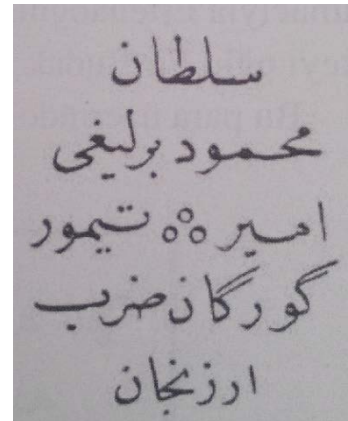 سلطان
محمود یرلیغی
امیر ەݸ تیمور
گورگان ضرب
ارزنجان